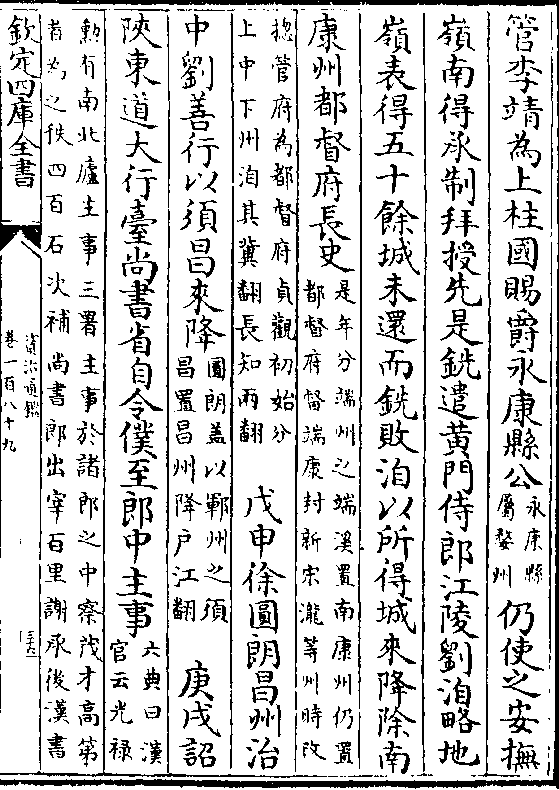 管李靖為上柱國賜爵永康縣公永康縣屬婺州仍使之安撫
嶺南得承制拜授先是銑遣黃門侍郎江陵劉洎略地
嶺表得五十餘城未還而銑敗洎以所得城來降除南
康州都督府長史是年分端州之端溪置南康州仍置都督府督端康封新宋瀧等州時改
揔管府為都督府貞觀初始分上中下州洎其冀翻長知兩翻戊申徐圓朗昌州治
中劉善行以須昌來降圓朗蓋以鄆州之須昌置昌州降户江翻庚戌詔
陜東道大行臺尚書省自令僕至郎中主事六典曰漢官云光禄
勲有南北廬主事三署主事於諸郎之中察茂才高第者為之秩四百石次補尚書郎出宰百里謝承後漢書
欽定四庫全書
資治通鑑
卷一百八十九
三十六